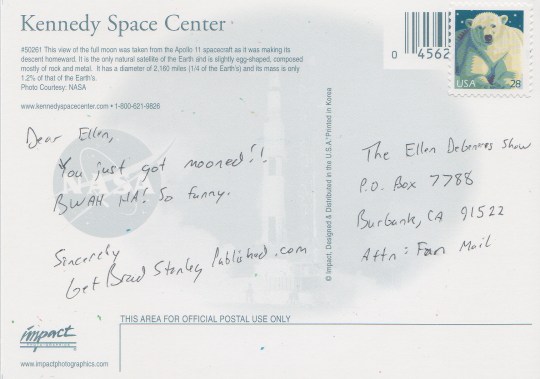 Kennedy Space Center
#50261 This view of the full moon was taken from the Apollo 11 spacecraft as it was making its
descent homeward. It is the only natural satellite of the Earth and is slightly egg-shaped, composed
mostly of rock and metal. It has a diameter of 2,160 miles (1/4 of the Earth's) and its mass is only
1.2% of that of the Earth's.
Photo Courtesy: NASA
www.kennedyspacecenter.com • 1-800-621-9826
0 4562
USA 28
Dear Ellen,
You just got mooned!!
BWAH HA! So funny.
Sincerely
Get Brad Stanley Published.com
NASA
© Impact, Designed & Distributed in the U.S.A. Printed in Korea
The Ellen Degeneres Show
P.O. Box 7788
Burbank, CA 91522
Attn: Fan Mail
THIS AREA FOR OFFICIAL POSTAL USE ONLY
impact
www.impactphotographics.com